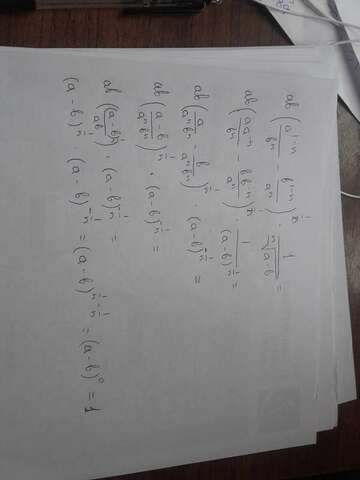 ab (a^{1-n}/b^n - b^{1-n}/a^n)^{1/n} · 1/ⁿ√(a-b) =
ab (a a^{-n}/b^n - b b^{-n}/a^n)^{1/n} · 1/(a-b)^{1/n} =
ab (a/(a^n b^n) - b/(a^n b^n))^{1/n} · (a-b)^{-1/n} =
ab ((a-b)/(a^n b^n))^{1/n} · (a-b)^{-1/n} =
ab ((a-b)^{1/n}/ab) · (a-b)^{-1/n} =
(a-b)^{1/n} · (a-b)^{-1/n} = (a-b)^{1/n-1/n} = (a-b)^0 = 1